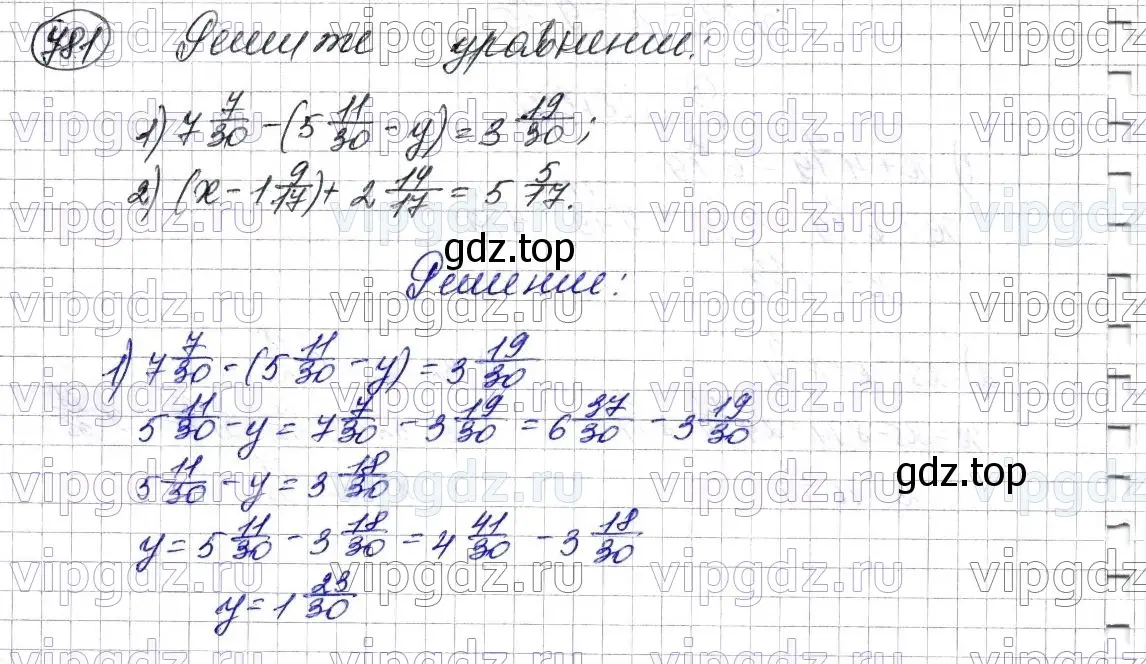 781 Решите уравнения:
1) 7 7/30 - (5 11/30 - y) = 3 19/30;
2) (x - 1 9/17) + 2 14/17 = 5 5/17.
gdz.top
Решение:
1) 7 7/30 - (5 11/30 - y) = 3 19/30
5 11/30 - y = 7 7/30 - 3 19/30 = 6 37/30 - 3 19/30
5 11/30 - y = 3 18/30
gdz.top
y = 5 11/30 - 3 18/30 = 4 41/30 - 3 18/30
y = 1 23/30
vipgdz.ru